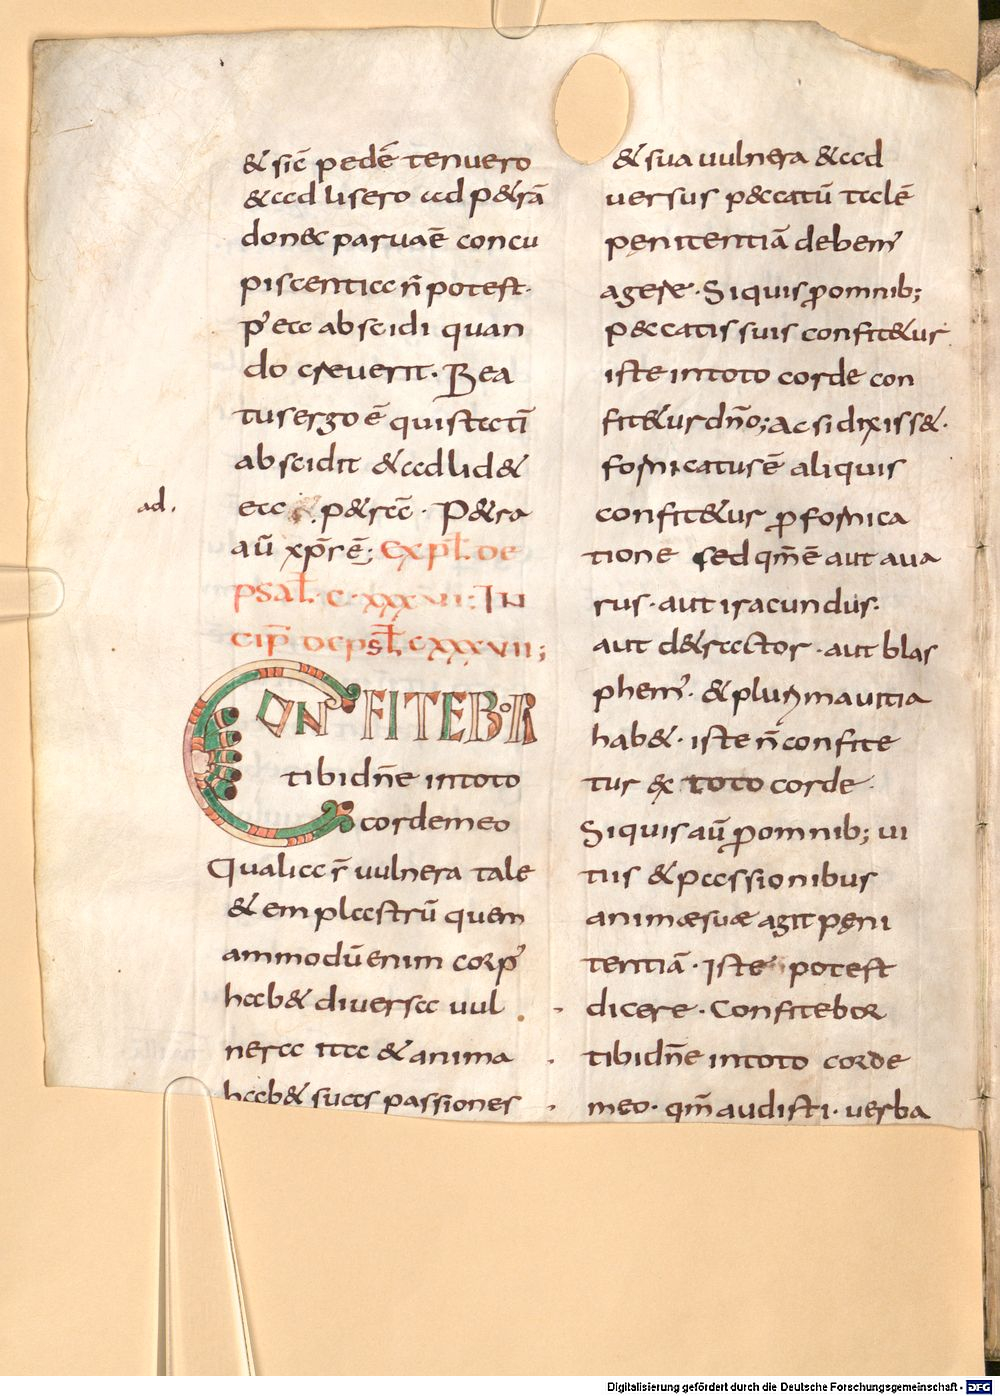 & sic̄ pedē tenuero
& adlisero ad p&rā
donec paruaē concu
piscentia n̄ potest.
p̄ ea abscidi quan
do creuerit. Bea
tus ergo ē qui statī
abscidit & adlid&
ad.
ea p&ra. P&ra
aū xp̄s ē; expl̄. de
psal̄. c. xxxvi: IN
cip̄ de psl̄ cxxxvii;
CONFITEBOR
tibi dn̄e in toto
corde meo
Qualia s̄ uulnera tale
& emplastrū quem
ammodū enim corp̄
hab& diuersa uul
nera ita & anima
hab& suas passiones
& sua uulnera & ad
uersus p&catū talē
penitentiā debem̄
agere. Si quis p̄ omnib;
p&catis suis confit&ur
iste in toto corde con
fit&ur dn̄o; Ac si dixiss&.
fornicatus ē aliquis
confit&ur p̄ fornica
tione sed qm̄ ē aut aua
rus. aut iracundus.
aut d&ractor. aut blas
phem̄. & plurima uitia
hab&. iste n̄ confite
tur ex toto corde.
Si quis aū p̄ omnib; ui
tiis & passionibus
animæ suæ agit peni
tentiā. Iste potest
dicere. Confitebor
tibi dn̄e in toto corde
meo. qm̄ audisti. uerba
Digitalisierung gefördert durch die Deutsche Forschungsgemeinschaft - DFG